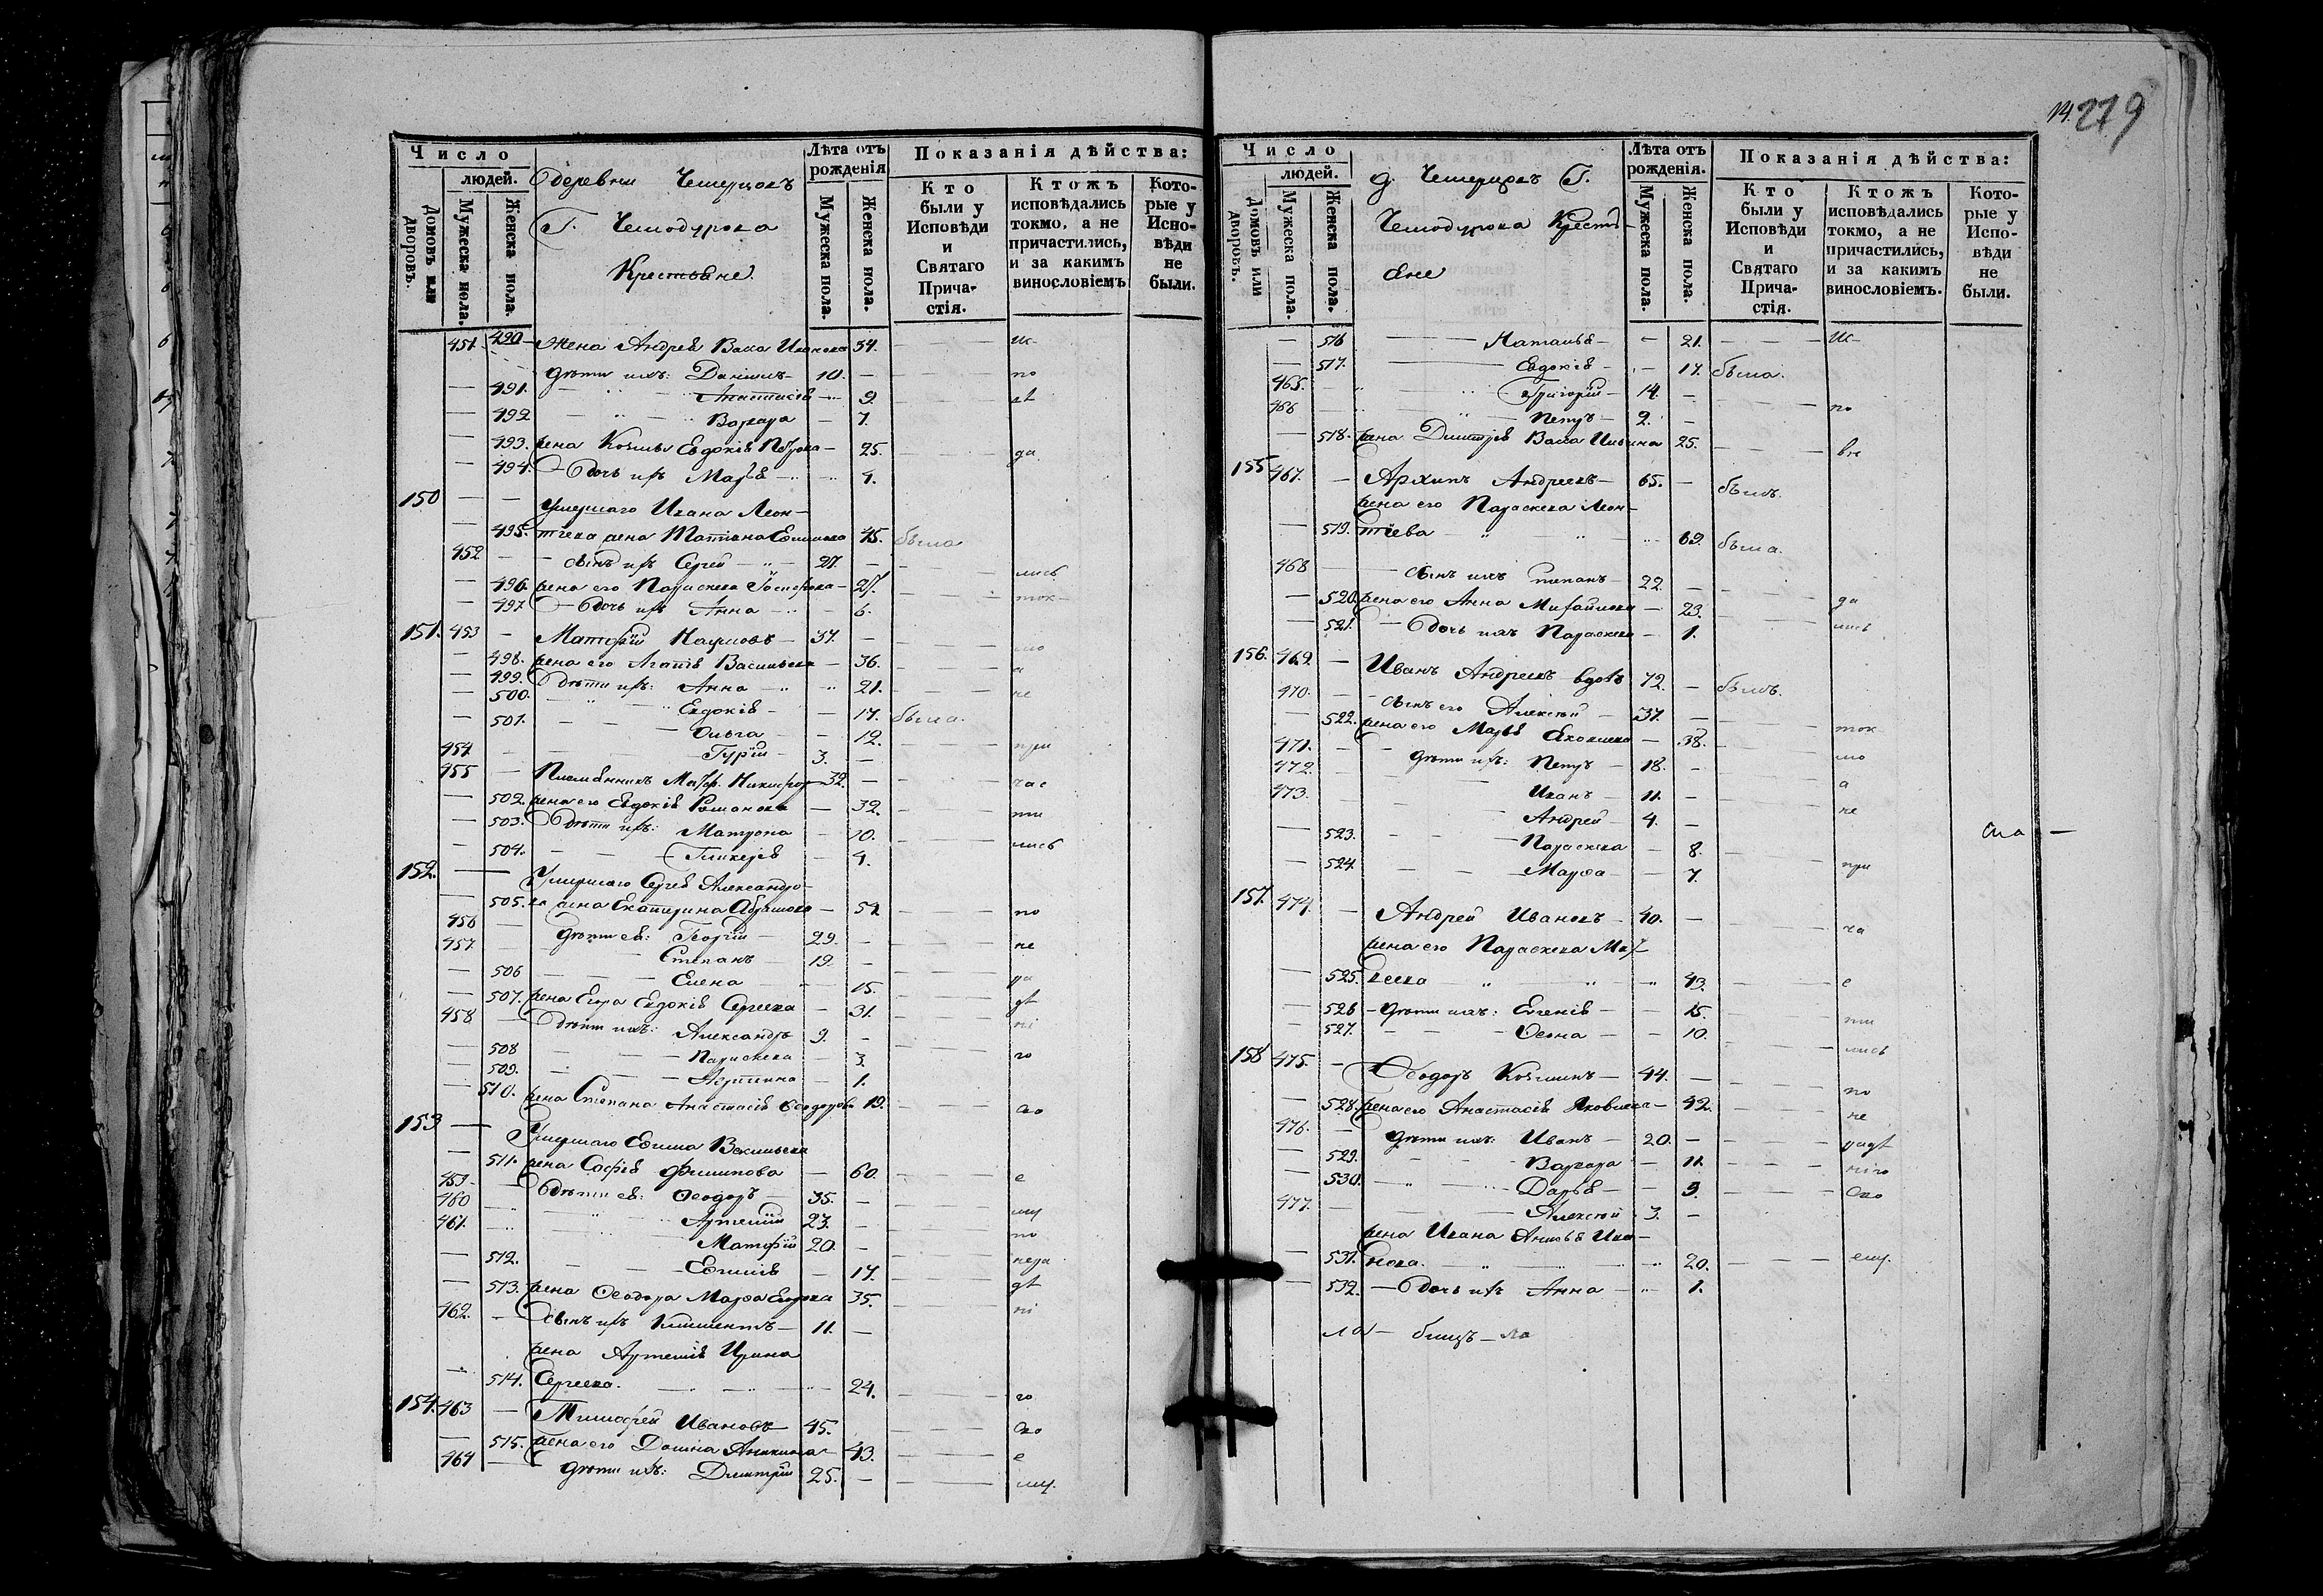 14. 279
Число
людей.
Домовъ или дворовъ.
Мужеска пола.
Женска пола.
деревни
Г.
Крестьяне.
Лѣта отъ рожденія
Мужеска пола.
Женска пола.
Показанія дѣйства:
Кто были у Исповѣди и Святаго Причастія.
Ктожъ исповѣдались токмо, а не причастились, и за какимъ винословіемъ
Которые у Исповѣди не были.
490 Жена Андрея Васса Иванова 34.
451. дѣти ихъ: Даніилъ 10. по
491. Анастасія 9.
492 Варвара 7.
493. жена Козьмы Евдокія Петрова 25. да
494. дочь ихъ Марья 4.
150 Умершаго Ивана Леон-
495. тіева жена Татіана 45. была
452 сынъ ихъ Сергей 27. лись
496. жена его Параскева 27. ток
497 дочь ихъ Анна 6.
151. 453 Матфій Наумовъ 37. мо
498. жена его Агапія Васильева 36. а
499. дѣти ихъ: Анна 21. не
500. Евдокія 17. была.
501. Ольга 12.
454 Гурій 3. при
455 Племянникъ Матф. Никифор 32. час
502. жена его Евдокія Романова 32. ти
503. дѣти ихъ: Матрона 10. лись
504. Гликерія 4.
152. Умершаго Сергея Александро-
505. ва жена Екатерина Абрамова 51 по
456 дѣти ея: Георгій 29. не
457. Степанъ 19.
506 Елена 15. ра
507. жена Егора Евдокія Сергеева 31. дѣ
458 дѣти ихъ: Александръ 9. ні
508 Параскева 3. го
509. 1.
510. жена Степана Анастасія Ѳеодорова 19. ско
153 Умершаго Ефима Васильева
511. жена Софія Филипова 60. е
459. дѣти ея: Ѳеодоръ 35.
460 Артемій 23. по
461. Матфій 20.
512. Ефимія 17.
513. жена Ѳеодора Марѳа Егорова 35. дѣ
462. сынъ ихъ Климентъ 11. ні
жена Артемія Ирина
514. Сергеева. 24. го
154. 463 Тимофей Ивановъ 45. ско
515. жена его Домна Аникина 43. е
464 дѣти ихъ: Дмитрій 25.
Число
людей.
Домовъ или дворовъ.
Мужеска пола.
Женска пола.
д. Г.
Кресть-
яне
Лѣта отъ рожденія.
Мужеска пола.
Женска пола.
Показанія дѣйства:
Кто были у Исповѣди и Святаго Причастія.
Ктожъ исповѣдались токмо, а не причастились, и за какимъ винословіемъ.
Которые у Исповѣди не были.
516 Наталья 21.
517. Евдокія 17. была.
465. Григорій 14. по
466 Петръ 2.
518. жена Дмитрія Васса Ильина 25.
155 467. Архипъ Андреевъ 65. былъ.
жена его Параскева Леон-
519. тіева 69. была.
468 сынъ ихъ Степанъ 22. да
520. жена его Анна Михайлова 23. лись
521. дочь ихъ Параскева 1.
156. 469. Иванъ Андреевъ вдовъ 72. былъ.
470. сынъ его Алексѣй 37. ток
522. жена его Марья Яковлева 38. мо
471. дѣти ихъ: Петръ 18. а
472. Иванъ 11. не
473. Андрей 4.
523. Параскева 8. при
524. Марѳа 7.
157. 474. Андрей Ивановъ 40. ча
жена его Параскева Мат-
525. веева 43. с
526 дѣти ихъ: Евгенія 15. ти
527. Ѳекла 10. лись
158 475. Ѳеодоръ Козминъ 44. по
528. жена его Анастасія Яковлева 42. не
476. дѣти ихъ: Иванъ 20. радѣ
529. Варвара 11. ніго
530. Дарья 9. ско
477. Алексѣй 3.
жена Ивана Анисья Ива-
531. нова. 20. ему.
532. дочь ихъ Анна 1.